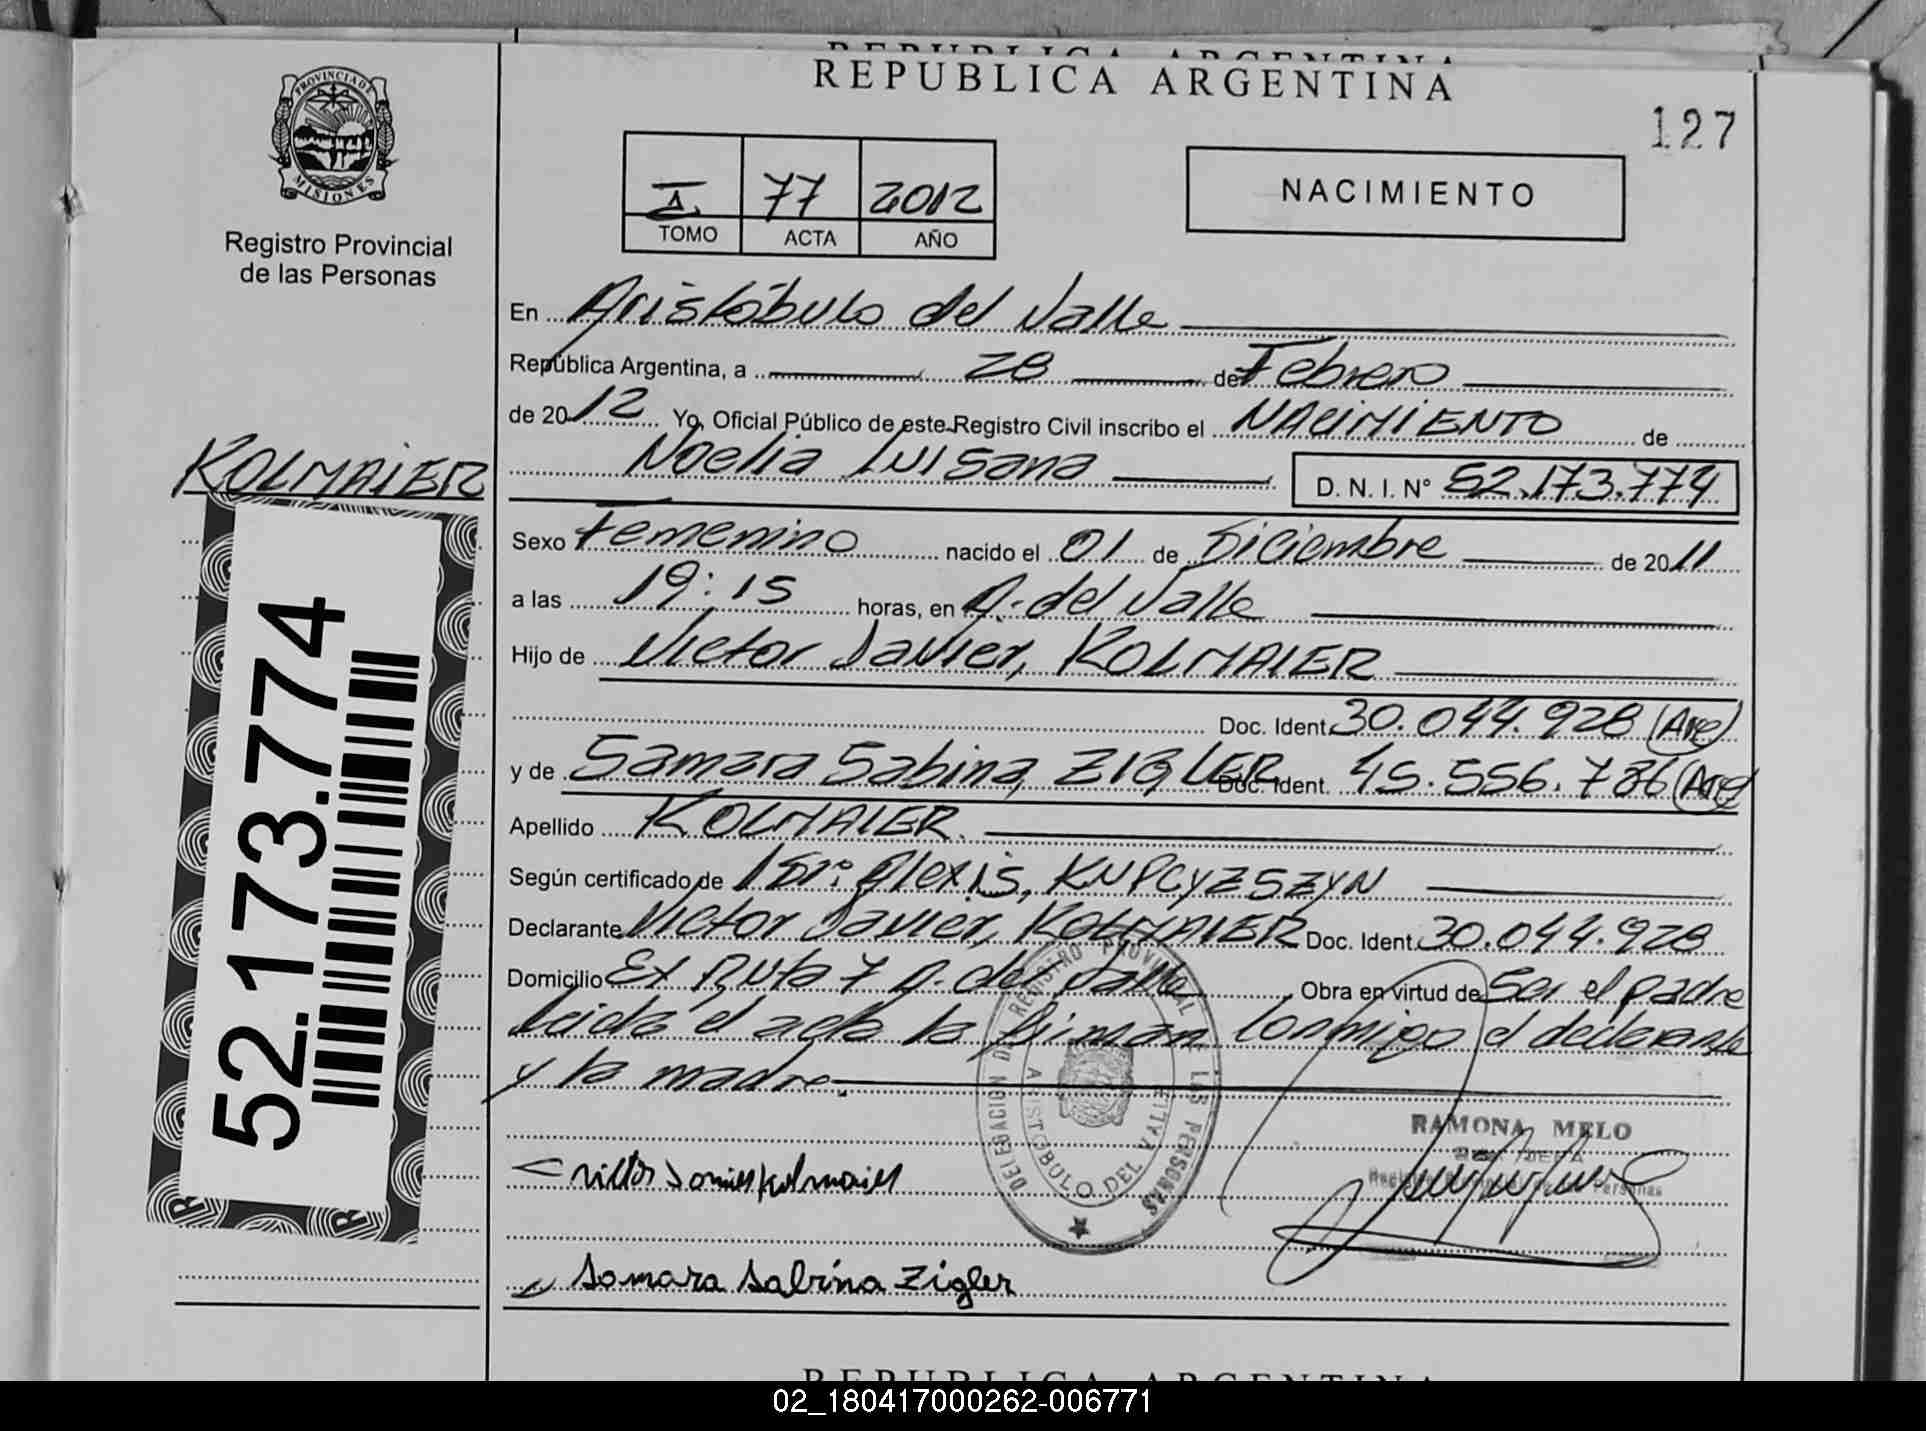 REPUBLICA ARGENTINA
REPUBLICA ARGENTINA
127
PROVINCIA DE
MISIONES
Registro Provincial
de las Personas
I 77 2012
TOMO ACTA AÑO
NACIMIENTO
En Aristóbulo del Valle
República Argentina, a 28 de Febrero
de 2012 Yo, Oficial Público de este Registro Civil inscribo el NACIMIENTO de
KOLMAIER
Noelia Luisana D. N. I. N° 52.173.774
Sexo Femenino nacido el 01 de Diciembre de 2011
a las 19:15 horas, en A. del Valle
Hijo de Victor Javier, KOLMAIER
Doc. Ident. 30.044.928 (Arg)
y de Samara Sabina, ZIGLER Doc. Ident. 45.556.786 (Arg)
Apellido KOLMAIER.
Según certificado de Alexis, KUPCYZSZYN
Declarante Victor Javier, KOLMAIER Doc. Ident. 30.044.928
Domicilio Ex Ruta 7 A. del Valle Obra en virtud de Ser el padre
Leida el acta la firman conmigo el declarante
y la madre.
52.173.774
DELEGACION DEL REGISTRO PROVINCIAL DE LAS PERSONAS
ARISTOBULO DEL VALLE
RAMONA MELO
Registro Provincial de las Personas
Victor Javier Kolmaier
Samara Sabrina Zigler
REPUBLICA ARGENTINA
02_180417000262-006771